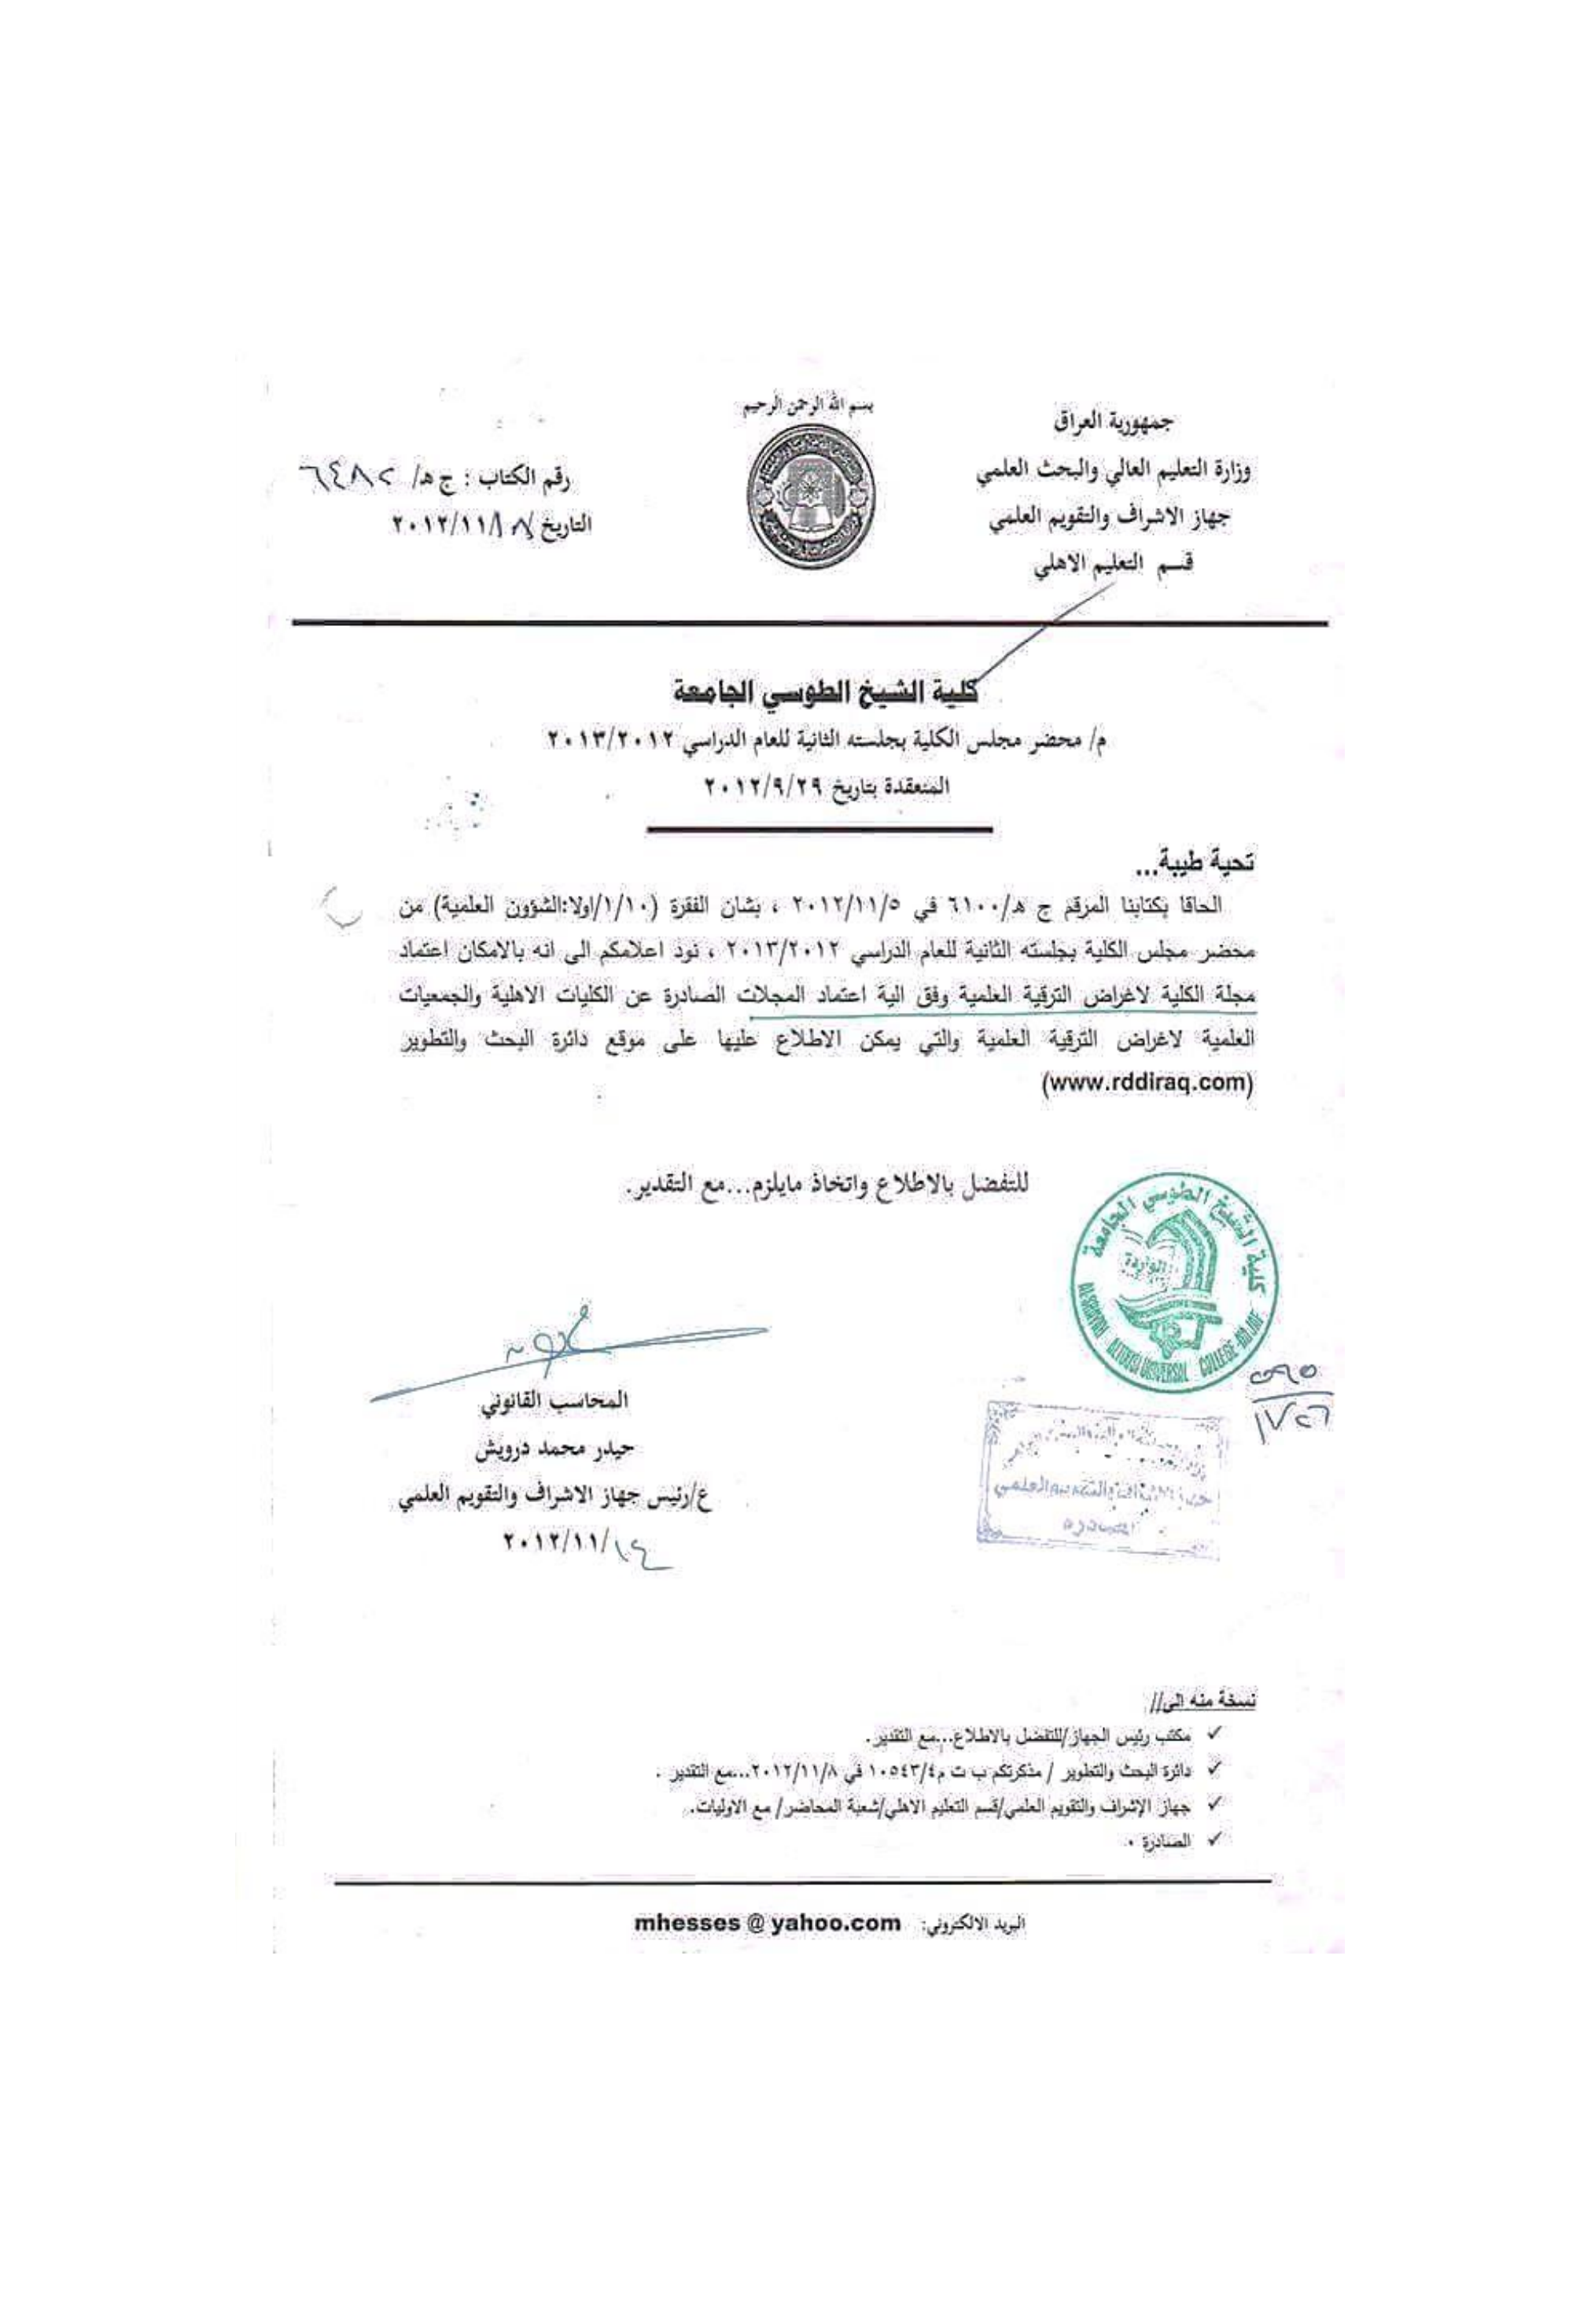 بسم الله الرحمن الرحيم
جمهورية العراق
وزارة التعليم العالي والبحث العلمي
جهاز الاشراف والتقويم العلمي
قسم التعليم الاهلي
رقم الكتاب : ج هـ/ ٦٤٨٢
التاريخ / ٢٠١٢/١١
كلية الشيخ الطوسي الجامعة
م/ محضر مجلس الكلية بجلسته الثانية للعام الدراسي ٢٠١٣/٢٠١٢
المنعقدة بتاريخ ٢٠١٢/٩/٢٩
تحية طيبة...
الحاقا بكتابنا المرقم ج هـ/٦١٠٠ في ٢٠١٢/١١/٥ ، بشان الفقرة (١/١٠/اولا:الشؤون العلمية) من
محضر مجلس الكلية بجلسته الثانية للعام الدراسي ٢٠١٣/٢٠١٢ ، نود اعلامكم الى انه بالامكان اعتماد
مجلة الكلية لاغراض الترقية العلمية وفق الية اعتماد المجلات الصادرة عن الكليات الاهلية والجمعيات
العلمية لاغراض الترقية العلمية والتي يمكن الاطلاع عليها على موقع دائرة البحث والتطوير
(www.rddiraq.com)
للتفضل بالاطلاع واتخاذ مايلزم...مع التقدير.
كلية الشيخ الطوسي الجامعة
الواردة
٥٩٥
١٧٢٦
المحاسب القانوني
حيدر محمد درويش
ع/رئيس جهاز الاشراف والتقويم العلمي
٢٠١٢/١١/١٤
نسخة منه الى//
✓ مكتب رئيس الجهاز/للتفضل بالاطلاع...مع التقدير.
✓ دائرة البحث والتطوير / مذكرتكم ب ت م١٠٥٤٣/٤ في ٢٠١٢/١١/٨...مع التقدير .
✓ جهاز الإشراف والتقويم العلمي/قسم التعليم الاهلي/شعبة المحاضر/ مع الاوليات.
✓ الصادرة .
البريد الالكتروني: mhesses @ yahoo.com